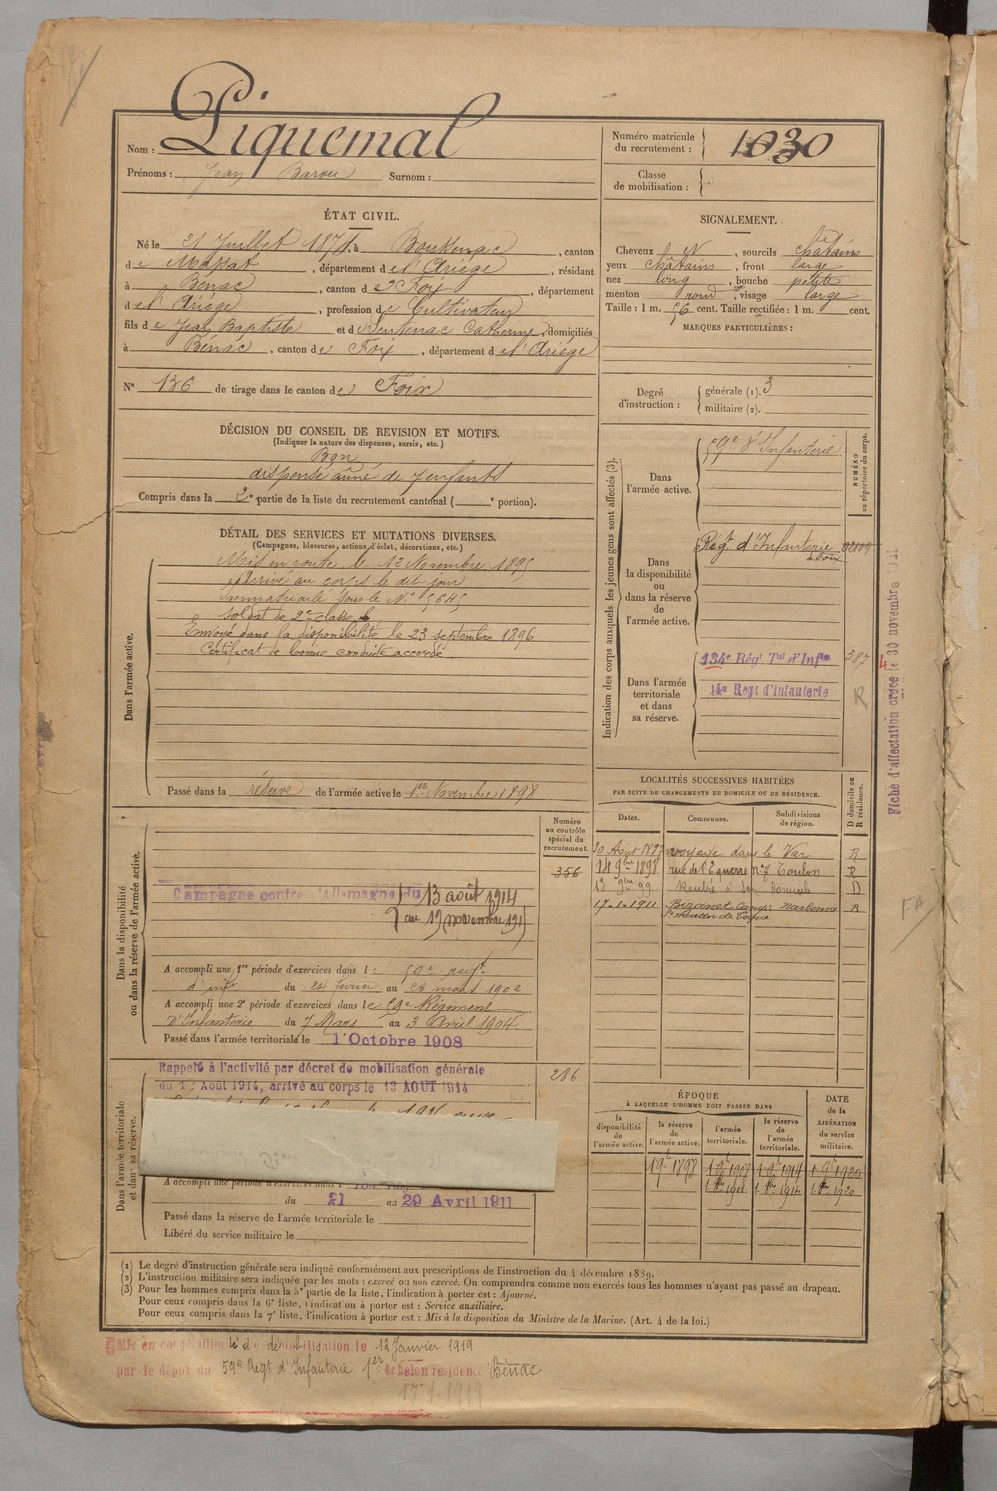 Piquemal
Nom :
Prénoms : Jean Surnom :
Numéro matricule
du recrutement : 1030
Classe
de mobilisation :
ÉTAT CIVIL.
Né le 21 Juillet 1874, à Boussenac, canton
de Massat, département de l'Ariège, résidant
à Bénac, canton de Foix, département
de l'Ariège, profession de Cultivateur
fils de Jean Baptiste et de Sentenac Catherine, domiciliés
à Bénac, canton de Foix, département de l'Ariège
N° 136 de tirage dans le canton de Foix
SIGNALEMENT.
Cheveux N, sourcils châtains
yeux châtains, front large
nez long, bouche petite
menton rond, visage large
Taille : 1 m. 56 cent. Taille rectifiée : 1 m. cent.
MARQUES PARTICULIÈRES :
Degré
d'instruction :
générale (1). 3
militaire (2).
DÉCISION DU CONSEIL DE REVISION ET MOTIFS.
(Indiquer la nature des dispenses, sursis, etc.)
Bon
dispensé aîné de 7 enfants
Compris dans la 2e partie de la liste du recrutement cantonal ( e portion).
DÉTAIL DES SERVICES ET MUTATIONS DIVERSES.
(Campagnes, blessures, actions d'éclat, décorations, etc.)
Dans l'armée active.
Mis en route le 12 Novembre 1895
Arrivé au corps le dit jour
Immatriculé sous le N° 5645
soldat de 2e classe
Envoyé dans la disponibilité le 23 septembre 1896
Certificat de bonne conduite accordé
Passé dans la réserve de l'armée active le 1er Novembre 1898
Indication des corps auxquels les jeunes gens sont affectés (3).
Dans
l'armée active.
59e d'Infanterie
NUMÉRO
au répertoire du corps.
Dans
la disponibilité
ou
dans la réserve
de
l'armée active.
Régt d'Infanterie
de Foix
Dans l'armée
territoriale
et dans
sa réserve.
134e Régt Tal d'Infie 387
14e Regt d'Infanterie R
Fiche d'affectation créée le 30 novembre
LOCALITÉS SUCCESSIVES HABITÉES
PAR SUITE DE CHANGEMENTS DE DOMICILE OU DE RÉSIDENCE.
Dates. Communes. Subdivisions
de région.
D domicile ou
R résidence.
voyage dans le Var R
14 9bre 1898 rue de l'Equerre n°7 Toulon R
99 Rentré à son domicile D
17-1-1911 Bizanet Camp Narbonne R
FA
Dans la disponibilité
ou dans la réserve de l'armée active.
Numéro
au contrôle
spécial du
recrutement.
356
Campagne contre l'Allemagne du 13 août 1914
au 19 novembre 191
A accompli une 1re période d'exercices dans le 59e regt
d'infie du 24 février au 23 mars 1902
A accompli une 2e période d'exercices dans le 59e Régiment
d'Infanterie du 7 Mars au 3 Avril 1904
Passé dans l'armée territoriale le 1 Octobre 1908
Dans l'armée territoriale
et dans sa réserve.
Rappelé à l'activité par décret de mobilisation générale
du 1er Août 1914, arrivé au corps le 13 AOUT 1914
286
A accompli une période d'exercices dans l
du 21 au 29 Avril 1911
Passé dans la réserve de l'armée territoriale le
Libéré du service militaire le
ÉPOQUE
À LAQUELLE L'HOMME DOIT PASSER DANS
la
disponibilité
de
l'armée active.
la réserve
de
l'armée active.
l'armée
territoriale.
la réserve
de
l'armée
territoriale.
DATE
de la
LIBÉRATION
du service
militaire.
(1) Le degré d'instruction générale sera indiqué conformément aux prescriptions de l'instruction du 4 décembre 1889.
(2) L'instruction militaire sera indiquée par les mots : exercé ou non exercé. On comprendra comme non exercés tous les hommes n'ayant pas passé au drapeau.
(3) Pour les hommes compris dans la 5e partie de la liste, l'indication à porter est : Ajourné.
Pour ceux compris dans la 6e liste, l'indication à porter est : Service auxiliaire.
Pour ceux compris dans la 7e liste, l'indication à porter est : Mis à la disposition du Ministre de la Marine. (Art. 4 de la loi.)
Mis en congé illimité de démobilisation le 12 Janvier 1919
par le dépôt du 59e Regt d'Infanterie 1er échelon residence Bénac
17-1-1919